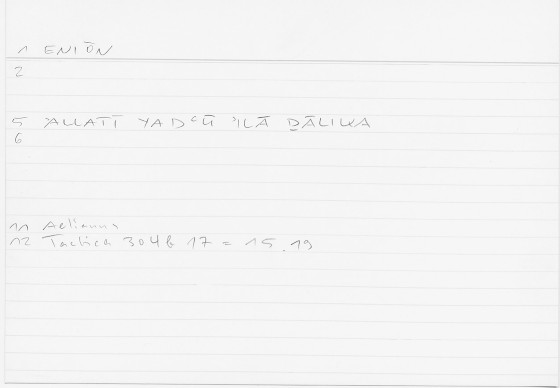 1 ENIŌN
2
5 ʾALLATĪ YADʿŪ ʾILĀ ḎĀLIKA
6
11 Aelianus
12 Tactica 304b 17 = 15.19